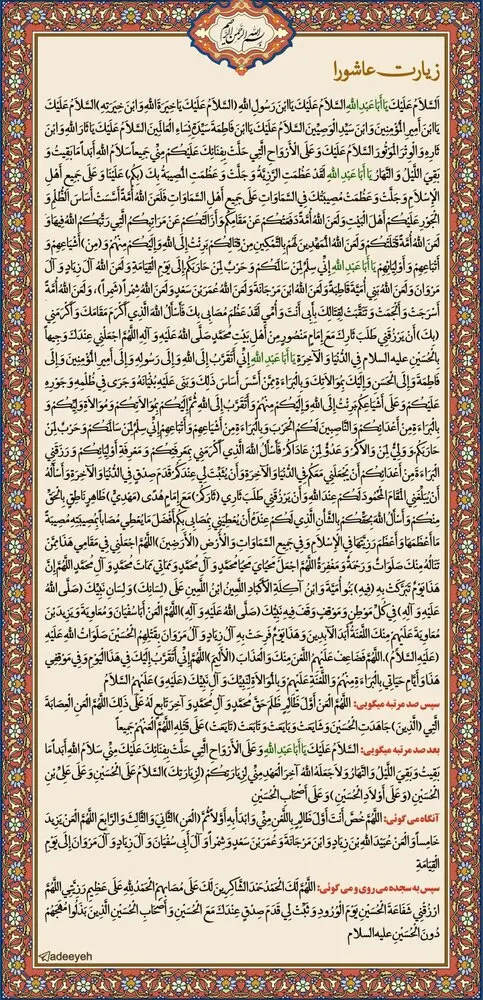 بسم الله الرحمن الرحیم
زیارت عاشورا
اَلسَّلامُ عَلَيْكَ يَا أَبَا عَبْدِ اللهِ السَّلامُ عَلَيْكَ يَا ابْنَ رَسُولِ اللهِ (السَّلامُ عَلَيْكَ يَا خِيَرَةَ اللهِ وَابْنَ خِيَرَتِهِ) السَّلامُ عَلَيْكَ
يَا ابْنَ أَمِيرِ الْمُؤْمِنِينَ وَابْنَ سَيِّدِ الْوَصِيِّينَ السَّلامُ عَلَيْكَ يَا ابْنَ فَاطِمَةَ سَيِّدَةِ نِسَاءِ الْعَالَمِينَ السَّلامُ عَلَيْكَ يَا ثَارَ اللهِ وَابْنَ
ثَارِهِ وَالْوِتْرَ الْمَوْتُورَ السَّلامُ عَلَيْكَ وَعَلَى الْأَرْوَاحِ الَّتِي حَلَّتْ بِفِنَائِكَ عَلَيْكُمْ مِنِّي جَمِيعاً سَلامُ اللهِ أَبَداً مَا بَقِيتُ وَ
بَقِيَ اللَّيْلُ وَالنَّهَارُ يَا أَبَا عَبْدِ اللهِ لَقَدْ عَظُمَتِ الرَّزِيَّةُ وَجَلَّتْ وَعَظُمَتِ الْمُصِيبَةُ بِكَ (بِكُمْ) عَلَيْنَا وَعَلَى جَمِيعِ أَهْلِ
الْإِسْلامِ وَجَلَّتْ وَعَظُمَتْ مُصِيبَتُكَ فِي السَّمَاوَاتِ عَلَى جَمِيعِ أَهْلِ السَّمَاوَاتِ فَلَعَنَ اللهُ أُمَّةً أَسَّسَتْ أَسَاسَ الظُّلْمِ وَ
الْجَوْرِ عَلَيْكُمْ أَهْلَ الْبَيْتِ وَلَعَنَ اللهُ أُمَّةً دَفَعَتْكُمْ عَنْ مَقَامِكُمْ وَأَزَالَتْكُمْ عَنْ مَرَاتِبِكُمُ الَّتِي رَتَّبَكُمُ اللهُ فِيهَا وَ
لَعَنَ اللهُ أُمَّةً قَتَلَتْكُمْ وَلَعَنَ اللهُ الْمُمَهِّدِينَ لَهُمْ بِالتَّمْكِينِ مِنْ قِتَالِكُمْ بَرِئْتُ إِلَى اللهِ وَإِلَيْكُمْ مِنْهُمْ وَ (مِنْ) أَشْيَاعِهِمْ وَ
أَتْبَاعِهِمْ وَأَوْلِيَائِهِمْ يَا أَبَا عَبْدِ اللهِ إِنِّي سِلْمٌ لِمَنْ سَالَمَكُمْ وَحَرْبٌ لِمَنْ حَارَبَكُمْ إِلَى يَوْمِ الْقِيَامَةِ وَلَعَنَ اللهُ آلَ زِيَادٍ وَآلَ
مَرْوَانَ وَلَعَنَ اللهُ بَنِي أُمَيَّةَ قَاطِبَةً وَلَعَنَ اللهُ ابْنَ مَرْجَانَةَ وَلَعَنَ اللهُ عُمَرَ بْنَ سَعْدٍ وَلَعَنَ اللهُ شِمْراً (شَمِراً)، وَلَعَنَ اللهُ أُمَّةً
أَسْرَجَتْ وَأَلْجَمَتْ وَتَنَقَّبَتْ لِقِتَالِكَ بِأَبِي أَنْتَ وَأُمِّي لَقَدْ عَظُمَ مُصَابِي بِكَ فَأَسْأَلُ اللهَ الَّذِي أَكْرَمَ مَقَامَكَ وَأَكْرَمَنِي
(بِكَ) أَنْ يَرْزُقَنِي طَلَبَ ثَارِكَ مَعَ إِمَامٍ مَنْصُورٍ مِنْ أَهْلِ بَيْتِ مُحَمَّدٍ صَلَّى اللهُ عَلَيْهِ وَآلِهِ اللَّهُمَّ اجْعَلْنِي عِنْدَكَ وَجِيهاً
بِالْحُسَيْنِ عليه السلام فِي الدُّنْيَا وَالْآخِرَةِ يَا أَبَا عَبْدِ اللهِ إِنِّي أَتَقَرَّبُ إِلَى اللهِ وَإِلَى رَسُولِهِ وَإِلَى أَمِيرِ الْمُؤْمِنِينَ وَإِلَى
فَاطِمَةَ وَإِلَى الْحَسَنِ وَإِلَيْكَ بِمُوَالاتِكَ وَبِالْبَرَاءَةِ مِمَّنْ أَسَّسَ أَسَاسَ ذَلِكَ وَبَنَى عَلَيْهِ بُنْيَانَهُ وَجَرَى فِي ظُلْمِهِ وَجَوْرِهِ
عَلَيْكُمْ وَعَلَى أَشْيَاعِكُمْ بَرِئْتُ إِلَى اللهِ وَإِلَيْكُمْ مِنْهُمْ وَأَتَقَرَّبُ إِلَى اللهِ ثُمَّ إِلَيْكُمْ بِمُوَالاتِكُمْ وَمُوَالاةِ وَلِيِّكُمْ وَ
بِالْبَرَاءَةِ مِنْ أَعْدَائِكُمْ وَالنَّاصِبِينَ لَكُمُ الْحَرْبَ وَبِالْبَرَاءَةِ مِنْ أَشْيَاعِهِمْ وَأَتْبَاعِهِمْ إِنِّي سِلْمٌ لِمَنْ سَالَمَكُمْ وَحَرْبٌ لِمَنْ
حَارَبَكُمْ وَوَلِيٌّ لِمَنْ وَالاكُمْ وَعَدُوٌّ لِمَنْ عَادَاكُمْ فَأَسْأَلُ اللهَ الَّذِي أَكْرَمَنِي بِمَعْرِفَتِكُمْ وَمَعْرِفَةِ أَوْلِيَائِكُمْ وَرَزَقَنِي
الْبَرَاءَةَ مِنْ أَعْدَائِكُمْ أَنْ يَجْعَلَنِي مَعَكُمْ فِي الدُّنْيَا وَالْآخِرَةِ وَأَنْ يُثَبِّتَ لِي عِنْدَكُمْ قَدَمَ صِدْقٍ فِي الدُّنْيَا وَالْآخِرَةِ وَأَسْأَلُهُ
أَنْ يُبَلِّغَنِي الْمَقَامَ الْمَحْمُودَ لَكُمْ عِنْدَ اللهِ وَأَنْ يَرْزُقَنِي طَلَبَ ثَارِي (ثَارَكُمْ) مَعَ إِمَامِ هُدًى (مَهْدِيٍّ) ظَاهِرٍ نَاطِقٍ بِالْحَقِّ
مِنْكُمْ وَأَسْأَلُ اللهَ بِحَقِّكُمْ وَبِالشَّأْنِ الَّذِي لَكُمْ عِنْدَهُ أَنْ يُعْطِيَنِي بِمُصَابِي بِكُمْ أَفْضَلَ مَا يُعْطِي مُصَاباً بِمُصِيبَتِهِ مُصِيبَةً
مَا أَعْظَمَهَا وَأَعْظَمَ رَزِيَّتَهَا فِي الْإِسْلامِ وَفِي جَمِيعِ السَّمَاوَاتِ وَالْأَرْضِ (الْأَرَضِينَ) اللَّهُمَّ اجْعَلْنِي فِي مَقَامِي هَذَا مِمَّنْ
تَنَالُهُ مِنْكَ صَلَوَاتٌ وَرَحْمَةٌ وَمَغْفِرَةٌ اللَّهُمَّ اجْعَلْ مَحْيَايَ مَحْيَا مُحَمَّدٍ وَآلِ مُحَمَّدٍ وَمَمَاتِي مَمَاتَ مُحَمَّدٍ وَآلِ مُحَمَّدٍ اللَّهُمَّ إِنَّ
هَذَا يَوْمٌ تَبَرَّكَتْ بِهِ (فِيهِ) بَنُو أُمَيَّةَ وَابْنُ آكِلَةِ الْأَكْبَادِ اللَّعِينُ ابْنُ اللَّعِينِ عَلَى (لِسَانِكَ) وَلِسَانِ نَبِيِّكَ (صَلَّى اللهُ
عَلَيْهِ وَآلِهِ) فِي كُلِّ مَوْطِنٍ وَمَوْقِفٍ وَقَفَ فِيهِ نَبِيُّكَ (صَلَّى اللهُ عَلَيْهِ وَآلِهِ) اللَّهُمَّ الْعَنْ أَبَا سُفْيَانَ وَمُعَاوِيَةَ وَيَزِيدَ بْنَ
مُعَاوِيَةَ عَلَيْهِمْ مِنْكَ اللَّعْنَةُ أَبَدَ الْآبِدِينَ وَهَذَا يَوْمٌ فَرِحَتْ بِهِ آلُ زِيَادٍ وَآلُ مَرْوَانَ بِقَتْلِهِمُ الْحُسَيْنَ صَلَوَاتُ اللهِ عَلَيْهِ
(عَلَيْهِ السَّلامُ). اللَّهُمَّ فَضَاعِفْ عَلَيْهِمُ اللَّعْنَ مِنْكَ وَالْعَذَابَ (الْأَلِيمَ) اللَّهُمَّ إِنِّي أَتَقَرَّبُ إِلَيْكَ فِي هَذَا الْيَوْمِ وَفِي مَوْقِفِي
هَذَا وَأَيَّامِ حَيَاتِي بِالْبَرَاءَةِ مِنْهُمْ وَاللَّعْنَةِ عَلَيْهِمْ وَبِالْمُوَالاةِ لِنَبِيِّكَ وَآلِ نَبِيِّكَ (عَلَيْهِ وَ) عَلَيْهِمُ السَّلامُ
سپس صد مرتبه میگویی: اللَّهُمَّ الْعَنْ أَوَّلَ ظَالِمٍ ظَلَمَ حَقَّ مُحَمَّدٍ وَآلِ مُحَمَّدٍ وَآخِرَ تَابِعٍ لَهُ عَلَى ذَلِكَ اللَّهُمَّ الْعَنِ الْعِصَابَةَ
الَّتِي (الَّذِينَ) جَاهَدَتِ الْحُسَيْنَ وَشَايَعَتْ وَبَايَعَتْ وَتَابَعَتْ (تَايَعَتْ) عَلَى قَتْلِهِ اللَّهُمَّ الْعَنْهُمْ جَمِيعاً
بعد صد مرتبه میگویی: السَّلامُ عَلَيْكَ يَا أَبَا عَبْدِ اللهِ وَعَلَى الْأَرْوَاحِ الَّتِي حَلَّتْ بِفِنَائِكَ عَلَيْكَ مِنِّي سَلامُ اللهِ أَبَداً مَا
بَقِيتُ وَبَقِيَ اللَّيْلُ وَالنَّهَارُ وَلا جَعَلَهُ اللهُ آخِرَ الْعَهْدِ مِنِّي لِزِيَارَتِكُمْ (لِزِيَارَتِكَ) السَّلامُ عَلَى الْحُسَيْنِ وَعَلَى عَلِيِّ بْنِ
الْحُسَيْنِ (وَعَلَى أَوْلادِ الْحُسَيْنِ) وَعَلَى أَصْحَابِ الْحُسَيْنِ
آنگاه می گوئی: اللَّهُمَّ خُصَّ أَنْتَ أَوَّلَ ظَالِمٍ بِاللَّعْنِ مِنِّي وَابْدَأْ بِهِ أَوَّلاً ثُمَّ (الْعَنِ) الثَّانِيَ وَالثَّالِثَ وَالرَّابِعَ اللَّهُمَّ الْعَنْ يَزِيدَ
خَامِساً وَالْعَنْ عُبَيْدَ اللهِ بْنَ زِيَادٍ وَابْنَ مَرْجَانَةَ وَعُمَرَ بْنَ سَعْدٍ وَشِمْراً وَآلَ أَبِي سُفْيَانَ وَآلَ زِيَادٍ وَآلَ مَرْوَانَ إِلَى يَوْمِ
الْقِيَامَةِ
سپس به سجده می روی و می گوئی: اللَّهُمَّ لَكَ الْحَمْدُ حَمْدَ الشَّاكِرِينَ لَكَ عَلَى مُصَابِهِمْ الْحَمْدُ لِلَّهِ عَلَى عَظِيمِ رَزِيَّتِي اللَّهُمَّ
ارْزُقْنِي شَفَاعَةَ الْحُسَيْنِ يَوْمَ الْوُرُودِ وَثَبِّتْ لِي قَدَمَ صِدْقٍ عِنْدَكَ مَعَ الْحُسَيْنِ وَأَصْحَابِ الْحُسَيْنِ الَّذِينَ بَذَلُوا مُهَجَهُمْ
دُونَ الْحُسَيْنِ عليه السلام
adeeyeh